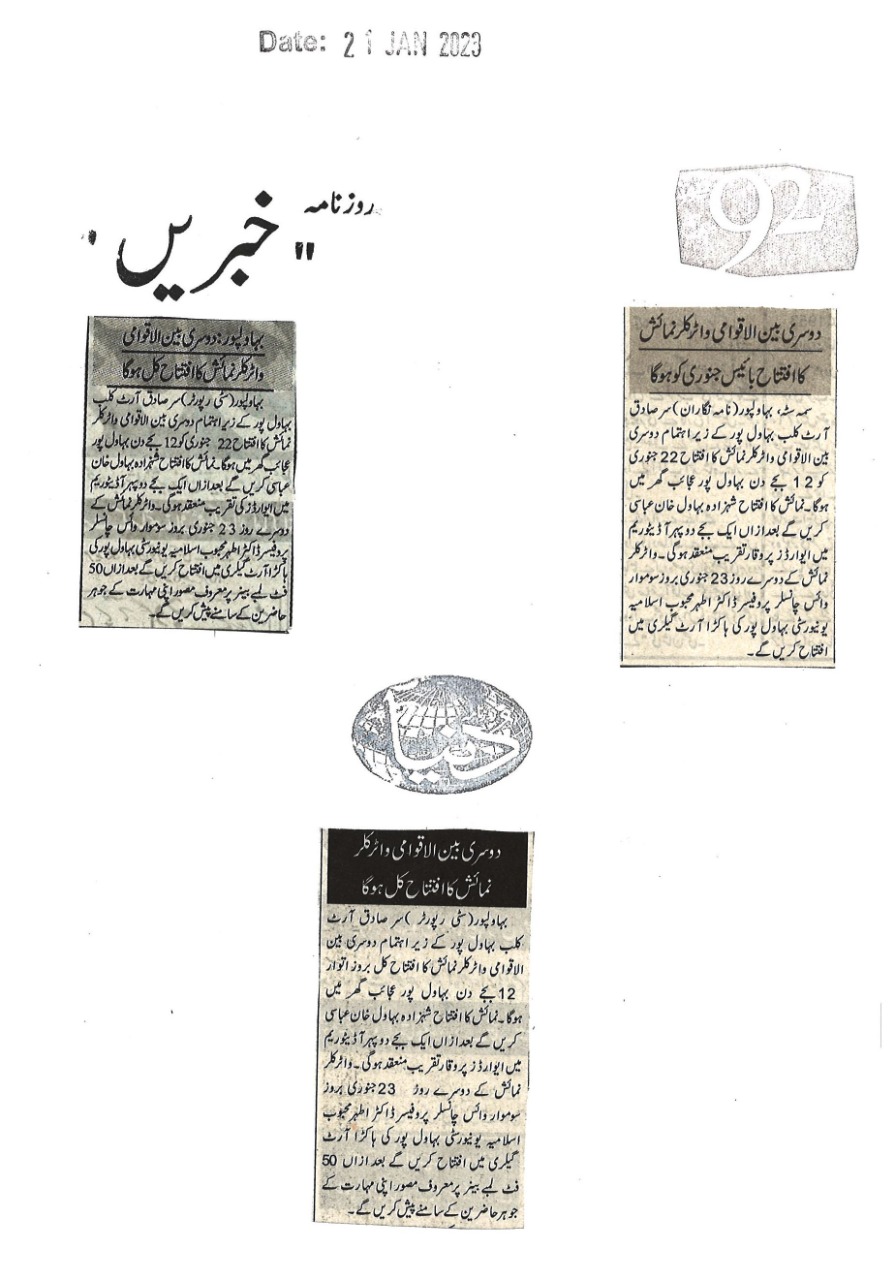 Date: 21 JAN 2023
روزنامہ
"خبریں"
بہاولپور: دوسری بین الاقوامی
واٹرکلر نمائش کا افتتاح کل ہوگا
بہاولپور(سٹی رپورٹر) سر صادق آرٹ کلب
بہاول پور کے زیر اہتمام دوسری بین الاقوامی واٹرکلر
نمائش کا افتتاح 22 جنوری کو 12 بجے دن بہاول پور
عجائب گھر میں ہوگا۔ نمائش کا افتتاح شہزادہ بہاول خان
عباسی کریں گے بعدازاں ایک بجے دوپہر آڈیٹوریم
میں ایوارڈز کی تقریب منعقد ہوگی۔ واٹرکلر نمائش کے
دوسرے روز 23 جنوری بروز سوموار وائس چانسلر
پروفیسر ڈاکٹر اطہر محبوب اسلامیہ یونیورسٹی بہاول پور کی
ہاکڑا آرٹ گیلری میں افتتاح کریں گے بعدازاں 50
فٹ لمبے بینر پر معروف مصور اپنی مہارت کے جوہر
حاضرین کے سامنے پیش کریں گے۔
92
دوسری بین الاقوامی واٹرکلر نمائش
کا افتتاح بائیس جنوری کو ہوگا
سمہ سٹہ، بہاولپور (نامہ نگاران) سر صادق
آرٹ کلب بہاول پور کے زیر اہتمام دوسری
بین الاقوامی واٹرکلر نمائش کا افتتاح 22 جنوری
کو 12 بجے دن بہاول پور عجائب گھر میں
ہوگا۔ نمائش کا افتتاح شہزادہ بہاول خان عباسی
کریں گے بعدازاں ایک بجے دوپہر آڈیٹوریم
میں ایوارڈز پروقار تقریب منعقد ہوگی۔ واٹرکلر
نمائش کے دوسرے روز 23 جنوری بروز سوموار
وائس چانسلر پروفیسر ڈاکٹر اطہر محبوب اسلامیہ
یونیورسٹی بہاول پور کی ہاکڑا آرٹ گیلری میں
افتتاح کریں گے۔
دنیا
دوسری بین الاقوامی واٹرکلر
نمائش کا افتتاح کل ہوگا
بہاولپور(سٹی رپورٹر) سر صادق آرٹ
کلب بہاول پور کے زیر اہتمام دوسری بین
الاقوامی واٹرکلر نمائش کا افتتاح کل بروز اتوار
12 بجے دن بہاول پور عجائب گھر میں
ہوگا۔ نمائش کا افتتاح شہزادہ بہاول خان عباسی
کریں گے بعدازاں ایک بجے دوپہر آڈیٹوریم
میں ایوارڈز پروقار تقریب منعقد ہوگی۔ واٹرکلر
نمائش کے دوسرے روز 23 جنوری بروز
سوموار وائس چانسلر پروفیسر ڈاکٹر اطہر محبوب
اسلامیہ یونیورسٹی بہاول پور کی ہاکڑا آرٹ
گیلری میں افتتاح کریں گے بعدازاں 50
فٹ لمبے بینر پر معروف مصور اپنی مہارت کے
جوہر حاضرین کے سامنے پیش کریں گے۔